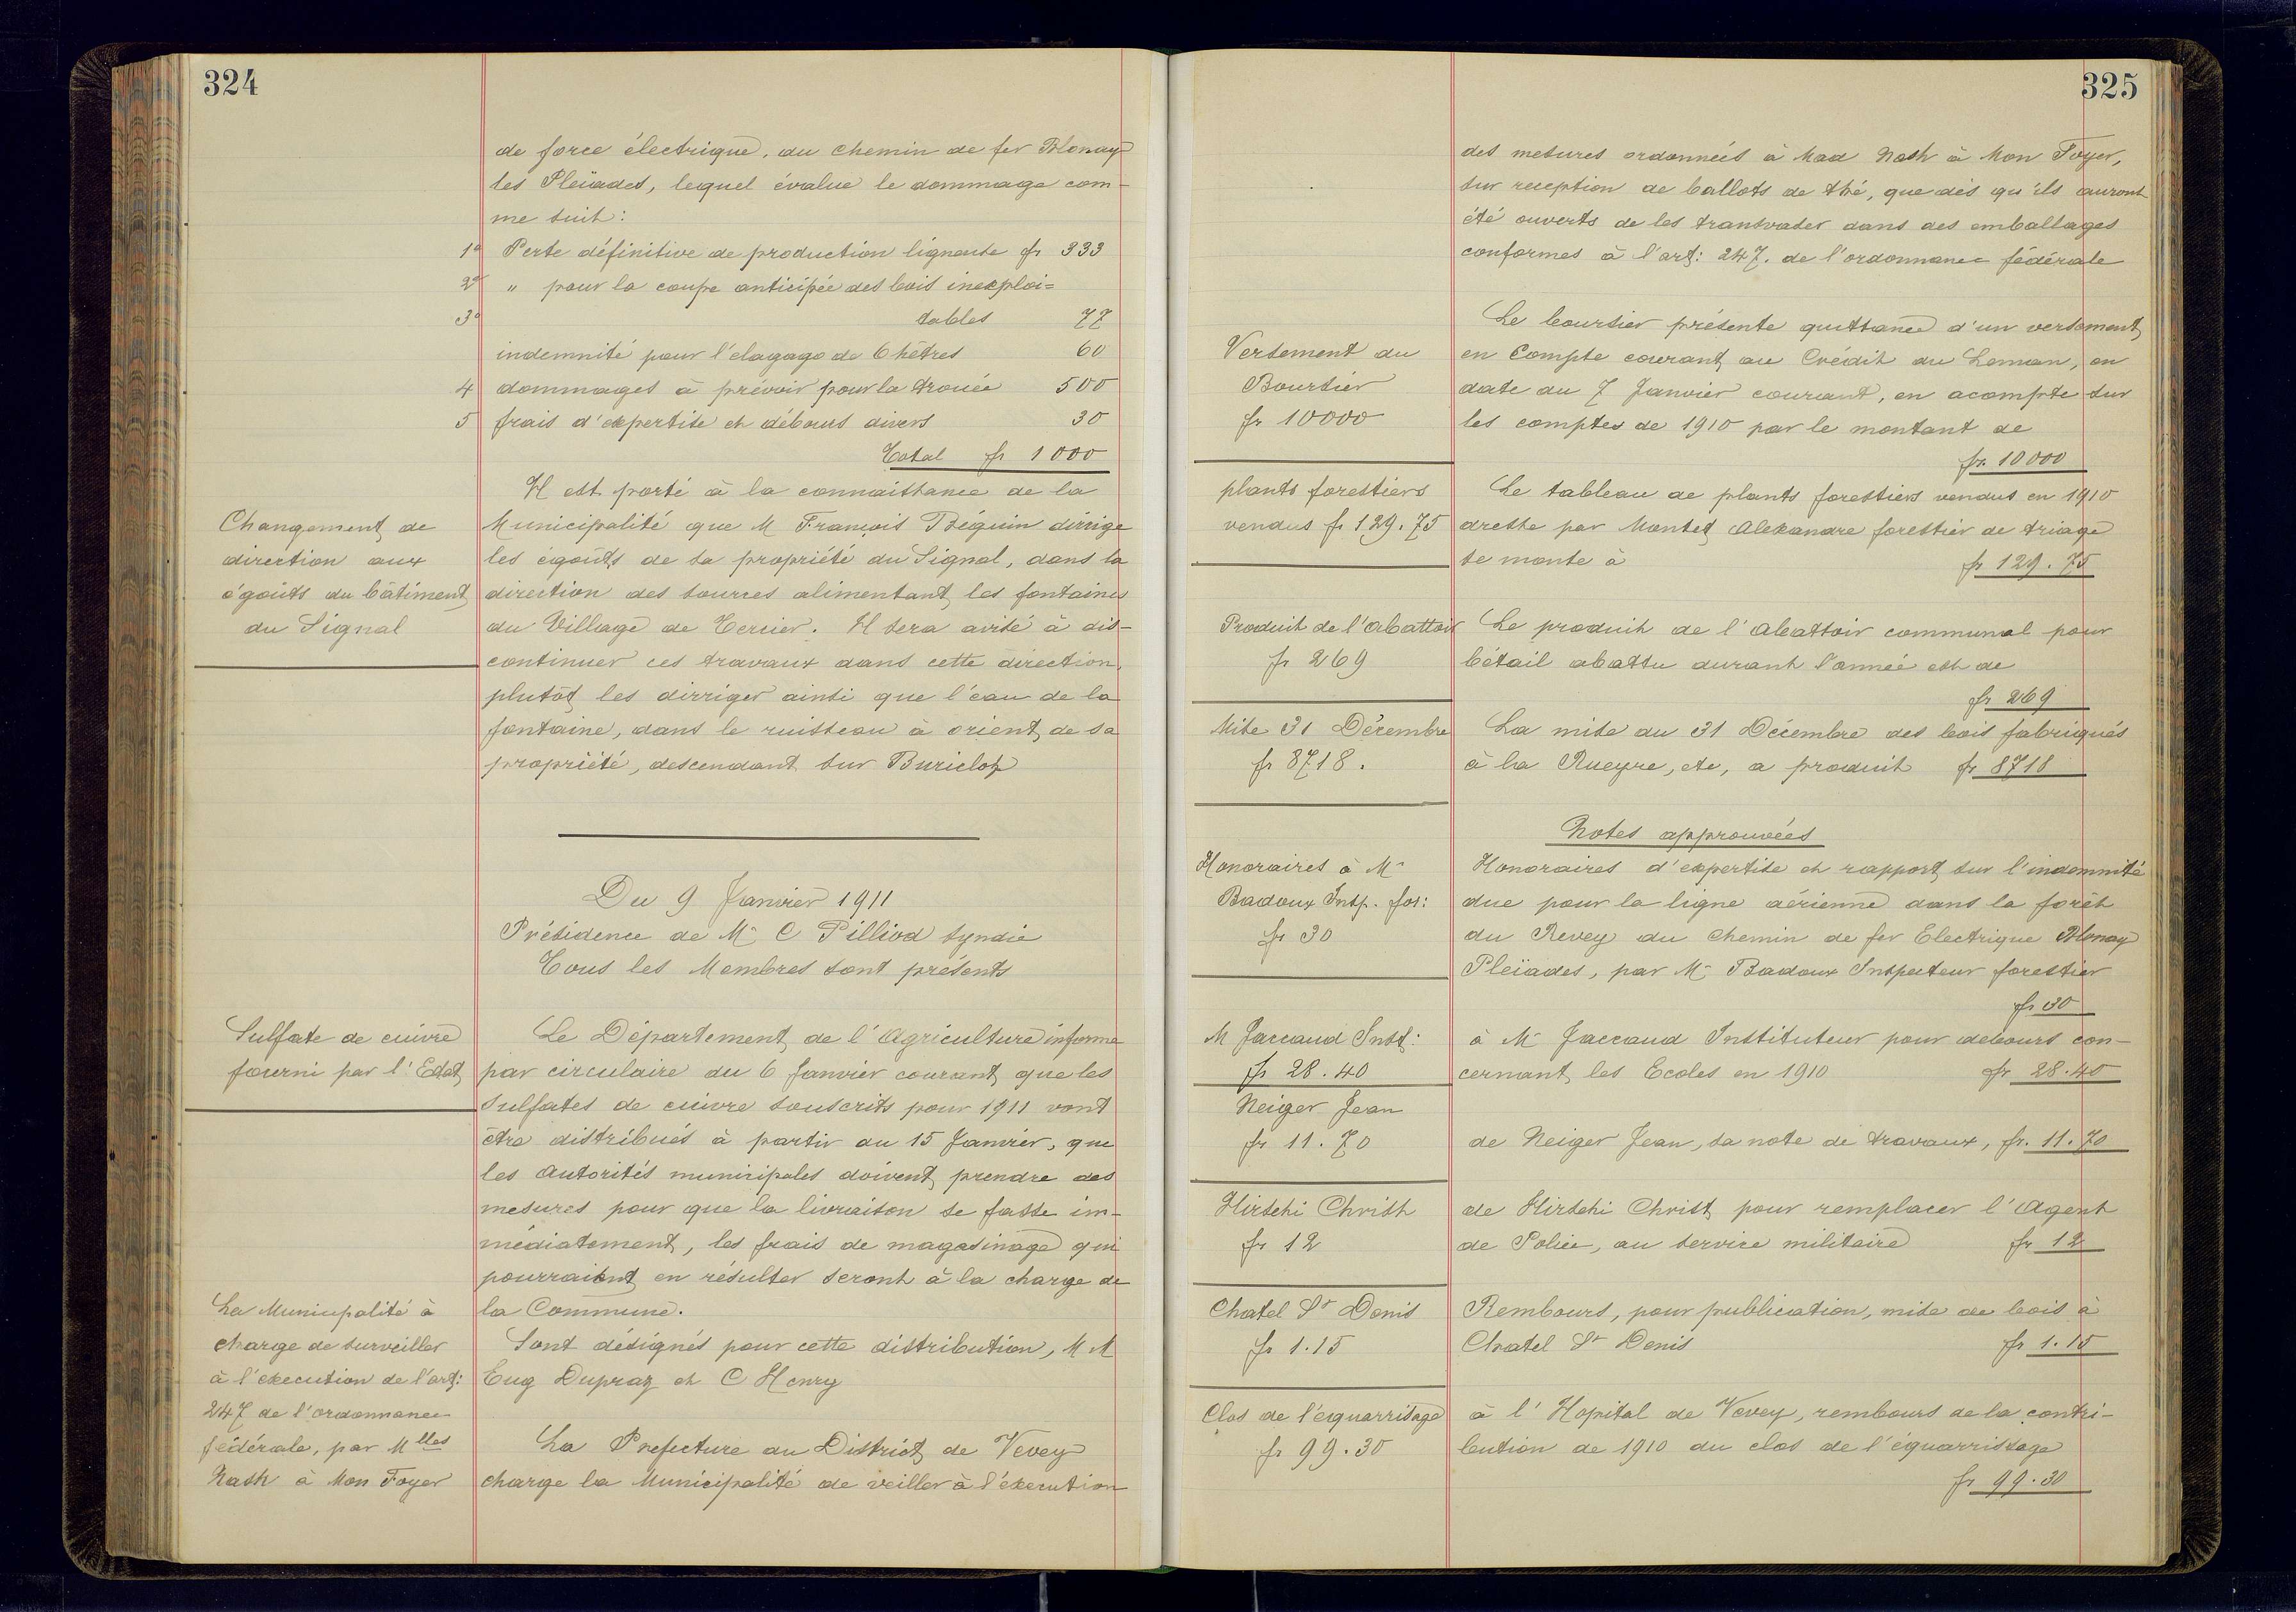 324
de force électrique, du chemin de fer Blonay
les Pleïades, lequel évalue le dommage com-
me suit:
1° Perte définitive de production ligneuse fr 333
2° " pour la coupe anticipée des bois inexploi=
3° tables 77
indemnité pour l'elagage de 6 hêtres 60
4 dommages à prévoir pour la trouée 500
5 frais d'expertise et débours divers 30
Total fr 1000
Changement de
direction aux
égoûts du bâtiment
du Signal
Il est porté à la connaissance de la
Municipalité que M François Béguin dirrige
les égoûts de sa propriété du Signal, dans la
direction des sources alimentant les fontaines
du Village de Tercier. Il sera avisé à dis-
continuer ces travaux dans cette direction,
plutôt les dirriger ainsi que l'eau de la
fontaine, dans le ruisseau à orient de sa
propriété, descendant sur Buricloz
Du 9 Janvier 1911
Présidence de Mr C Pilliod Syndic
Tous les Membres sont présents
Sulfate de cuivre
fourni par l'Etat
Le Département de l'Agriculture informe
par circulaire du 6 Janvier courant que les
Sulfates de cuivre souscrits pour 1911 vont
être distribués à partir du 15 Janvier, que
les Autorités municipales doivent prendre des
mesures pour que la livraison se fasse im-
médiatement, les frais de magasinage qui
pourraient en résulter seront à la charge de
la Commune.
Sont désignés pour cette distribution, MM
Eug Dupraz et C Henry
La Municipalité à
charge de surveiller
à l'execution de l'art:
247 de l'ordonnance
fédérale, par Mlles
Nash à Mon Foyer
La Prefecture du District de Vevey
charge la Municipalité de veiller à l'éxecution
325
des mesures ordonnées à Mad Nash à Mon Foyer,
sur reception de ballots de thé, que dès qu'ils auront
été ouverts de les transvaser dans des emballages
conformes à l'art: 247. de l'ordonnance fédérale
Versement du
Boursier
fr 10000
Le boursier présente quittance d'un versement
en Compte courant au Crédit du Leman, en
date du 7 Janvier courant, en acompte sur
les comptes de 1910 par le montant de
fr. 10000
plants forestiers
vendus fr 129.75
Le tableau de plants forestiers vendus en 1910
dresse par Montet Alexandre forestier de triage
se monte à fr 129.75
Produit de l'abattoir
fr 269
Le produit de l'Abattoir communal pour
bétail abattu durant l'année est de
fr 269
Mise 31 Décembre
fr 8718.
La mise du 31 Décembre des bois fabriqués
à la Rueyre, etc, a produit fr 8718
Notes approuvées
Honoraires à Mr
Badoux Insp. for:
fr 30
Honoraires d'expertise et rapport sur l'indemnité
due pour la ligne aérienne dans la forêt
du Revey du Chemin de fer Electrique Blonay
Pleïades, par Mr Badoux Inspecteur forestier
fr 30
M Jaccaud Inst:
fr 28.40
à Mr Jaccaud Instituteur pour debours con-
cernant les Ecoles en 1910 fr 28.40
Neiger Jean
fr 11.70
de Neiger Jean, sa note de travaux, fr. 11.70
Hirschi Christ
fr 12
de Hirschi Christ pour remplacer l'Agent
de Police, au service militaire fr 12
Chatel St Denis
fr 1.15
Rembours, pour publication, mise de bois à
Chatel St Denis fr 1.15
Clos de l'équarrisage
fr 99.30
à l'Hopital de Vevey, rembours de la contri-
bution de 1910 du clos de l'équarrissage
fr 99.30